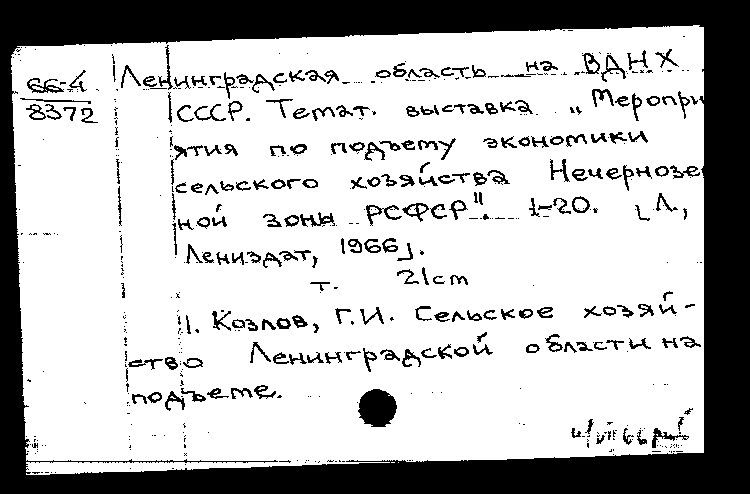 66-4
8372
Ленинградская область на ВДНХ
СССР. Темат. выставка „Меропри
ятия по подъему экономики
сельского хозяйства Нечернозе
ной зоны РСФСР". 1-20. [Л.,
Лениздат, 1966].
т. 21cm
1. Козлов, Г.И. Сельское хозяй-
ство Ленинградской области на
подъеме.